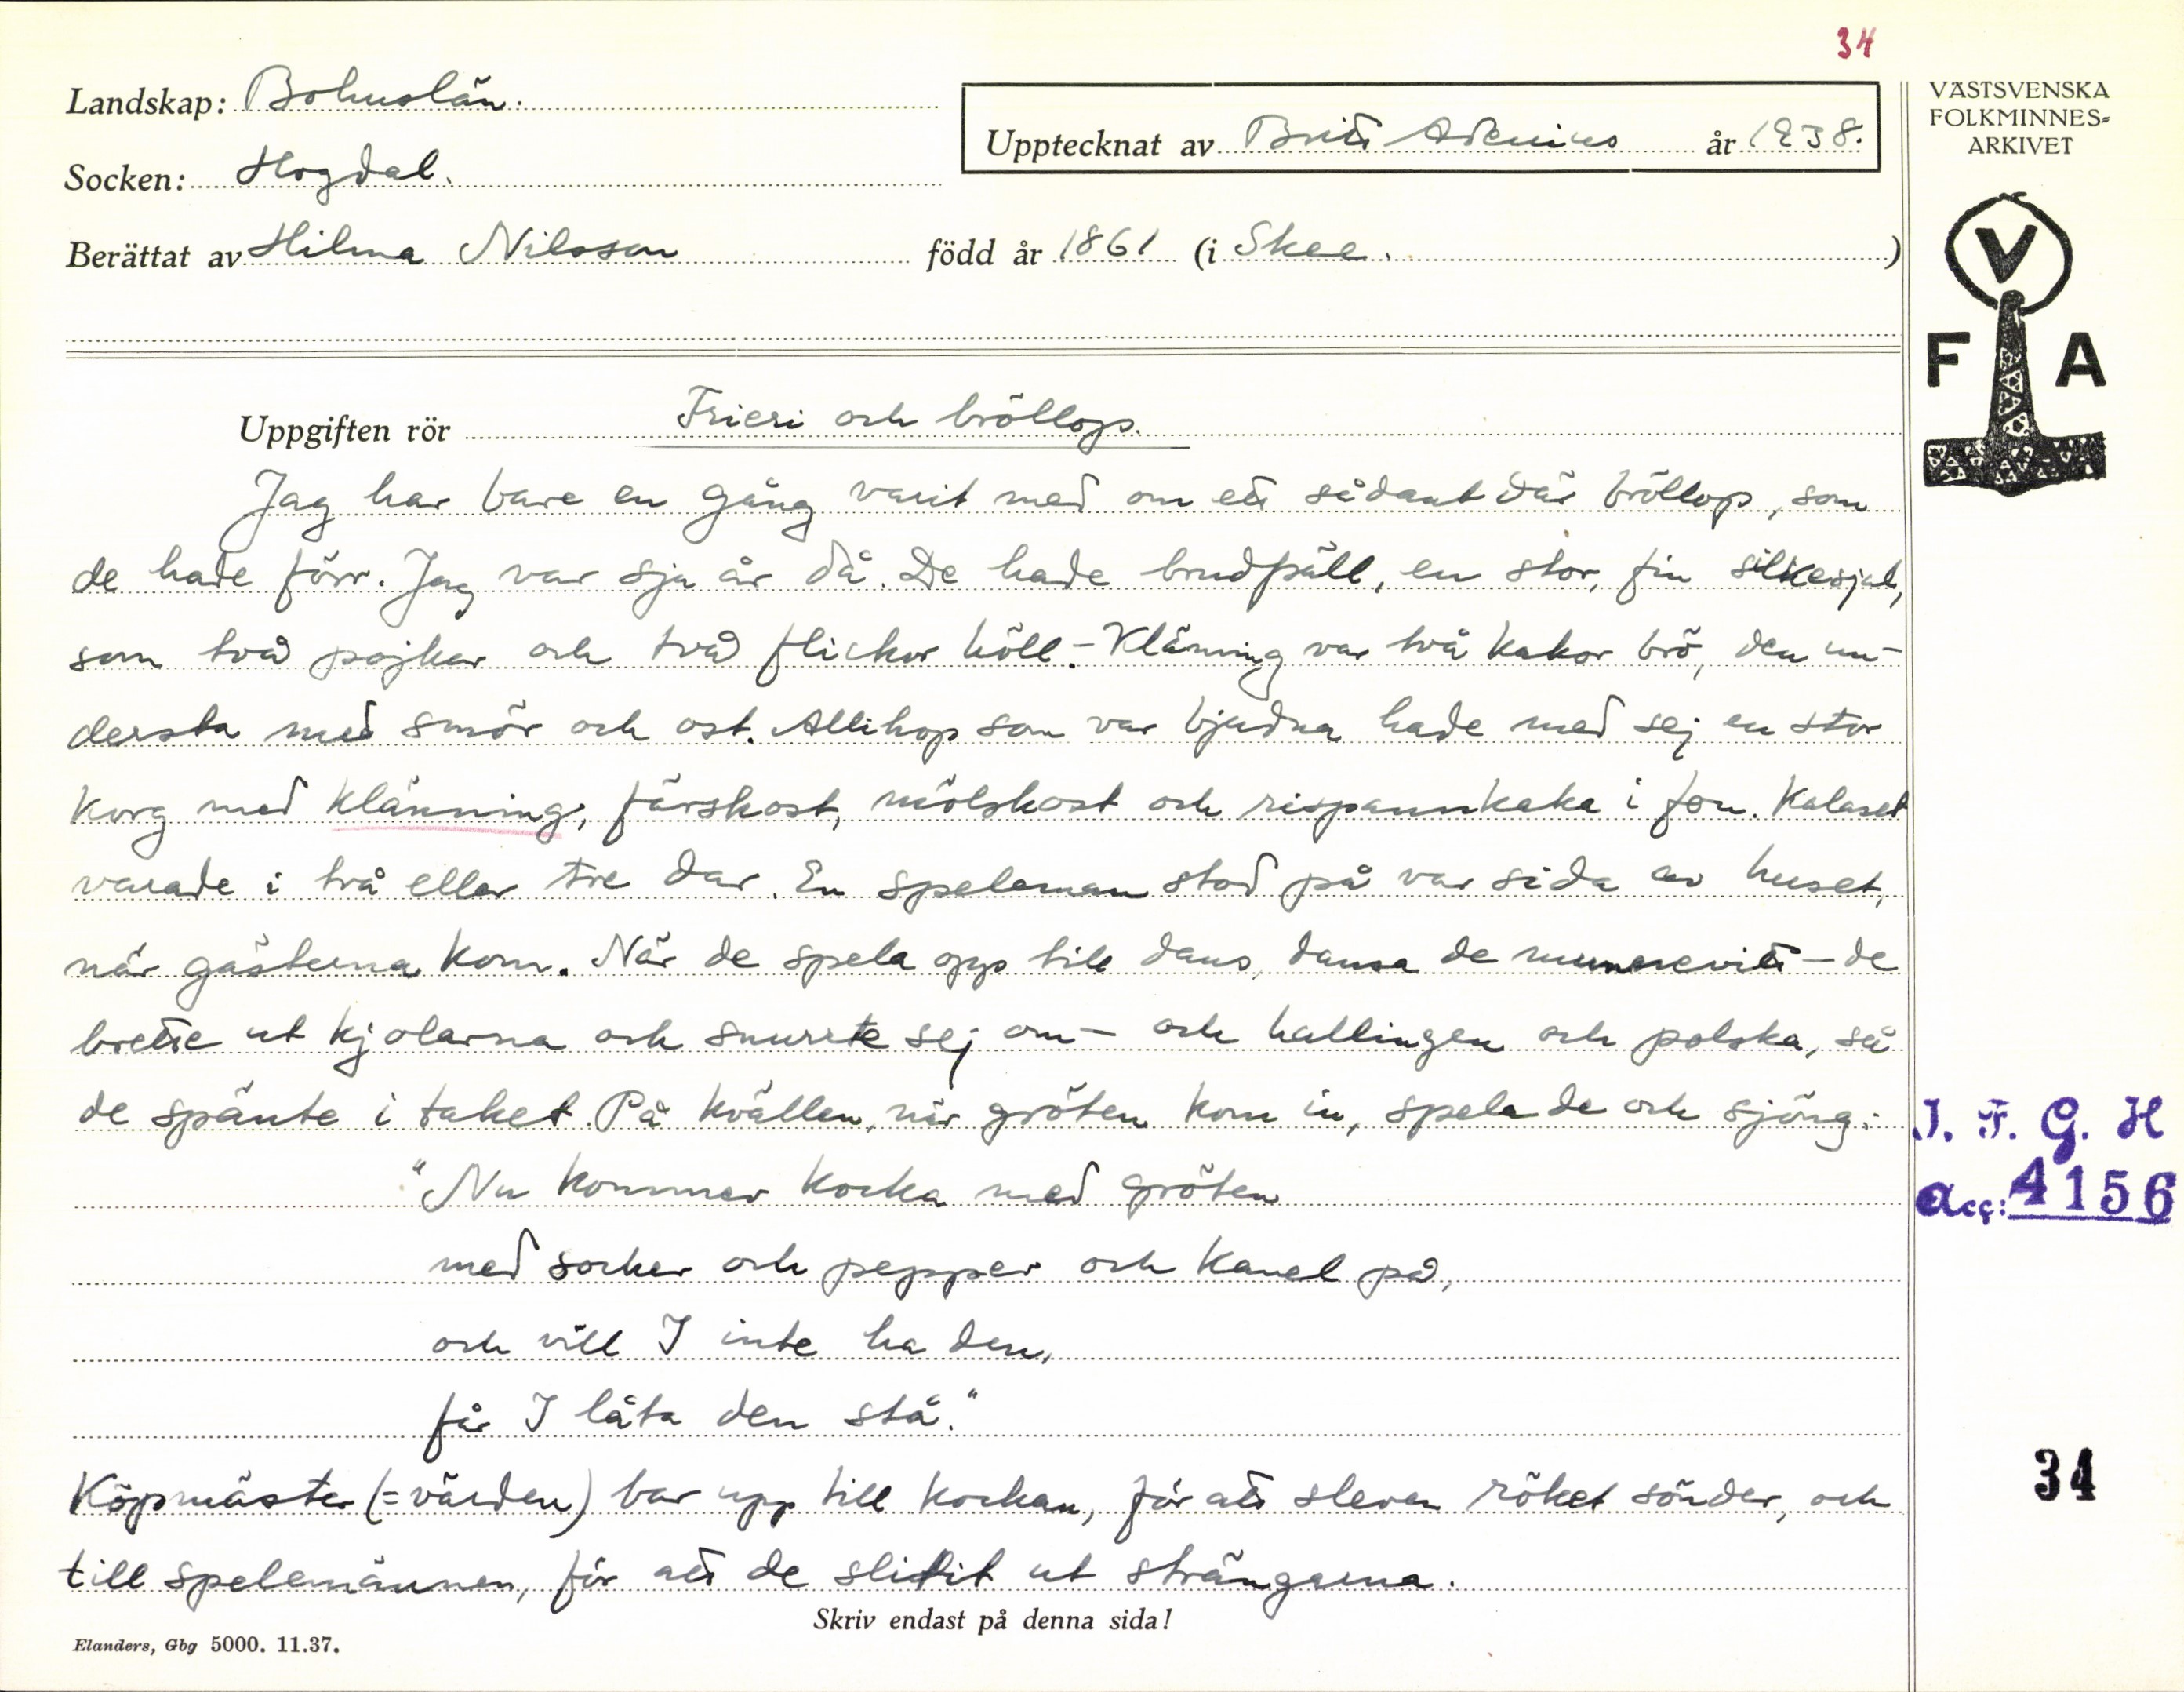 34
Landskap: Bohuslän.
Upptecknat av Britt Adenius år 1938.
Socken: Hogdal.
Berättat av Hilma Nilsson född år 1861 (i Skee. )
VÄSTSVENSKA
FOLKMINNES-
ARKIVET
V
F A
Uppgiften rör Frieri och bröllop.
Jag har bare en gång varit med om ett sådant där bröllop, som
de hade förr. Jag var sju år då. De hade brudpäll, en stor, fin silkesjal,
som två pojkar och två flickor höll. - Klänning var två kakor brö, den un-
dersta med smör och ost. Allihop som var bjudna hade med sej en stor
korg med klänning, färskost, mölskost och rispannkaka i fon. Kalaset
varade i två eller tre dar. En speleman stod på var sida av huset,
när gästerna kom. När de spela opp till dans, dansa de munnevitt - de
brette ut kjolarna och snurrte sej om - och hallingen och polska, så
de spänte i taket. På kvällen, när gröten kom in, spela de och sjöng:
"Nu kommer kocka med gröten
med socker och pepper och kanel på,
och vill I inte ha den,
får I låta den stå."
Köpmäster (= värden) bar upp till kockan, för att sleven röket sönder, och
till spelemännen, för att de slitit ut strängarna.
I. F. G. H
acc: 4156
34
Skriv endast på denna sida!
Elanders, Gbg 5000. 11.37.